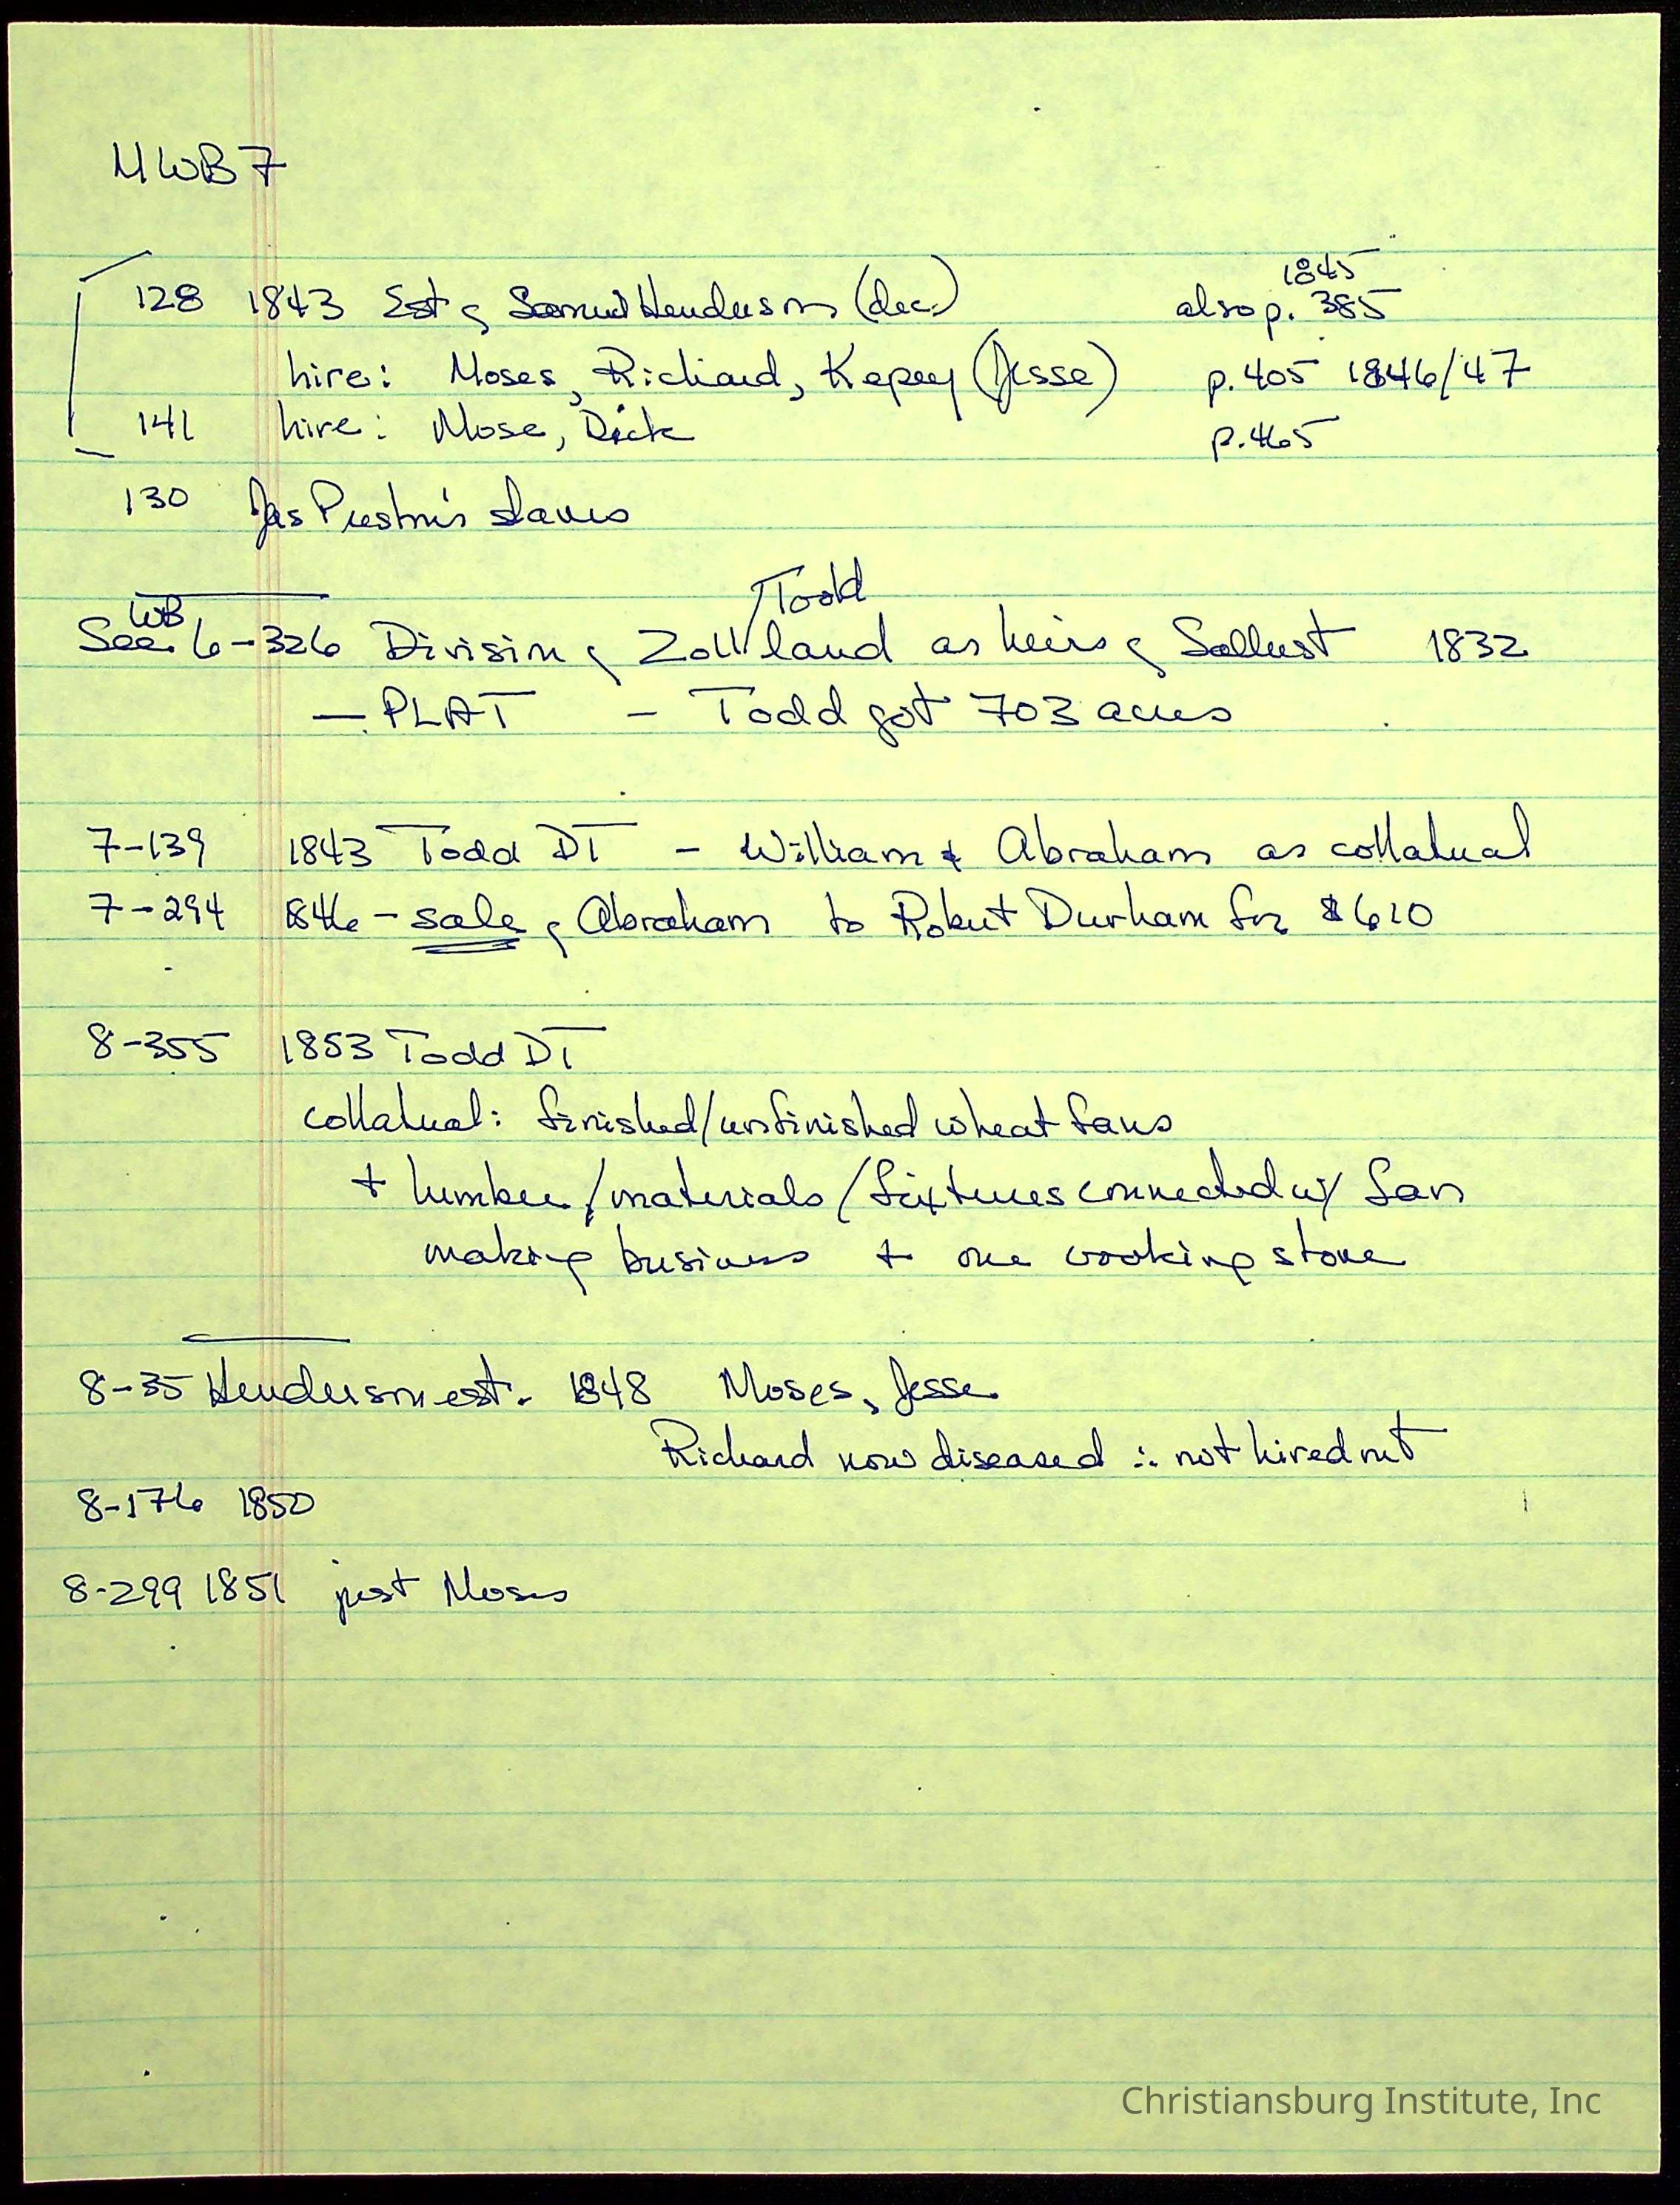 MWB 7
1845
128 1843 Est of Samuel Henderson (dec.) also p. 385
hire: Moses, Richard, (Jesse) p. 405 1846/47
141 hire: Mose, Dick p. 465
130 Jas Preston's slaves
WB Todd
See 6-326 Division of Zoll land as heirs of Sallust 1832
— PLAT - Todd got 703 acres
7-139 1843 Todd DT - William & Abraham as collateral
7-294 1846 - sale of Abraham to Robert Durham for $610
8-355 1853 Todd DT
collateral: finished/unfinished wheat fans
+ lumber/materials/fixtures connected w/ fan
making business + one cooking stove
8-35 Henderson est. 1848 Moses, Jesse
Richard now diseased ∴ not hired out
8-176 1850
8-299 1851 just Moses
Christiansburg Institute, Inc